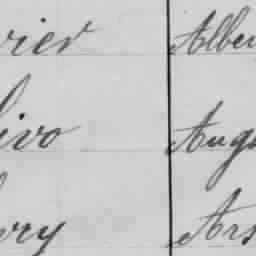 rier Albe
livo Augu
vry Ars